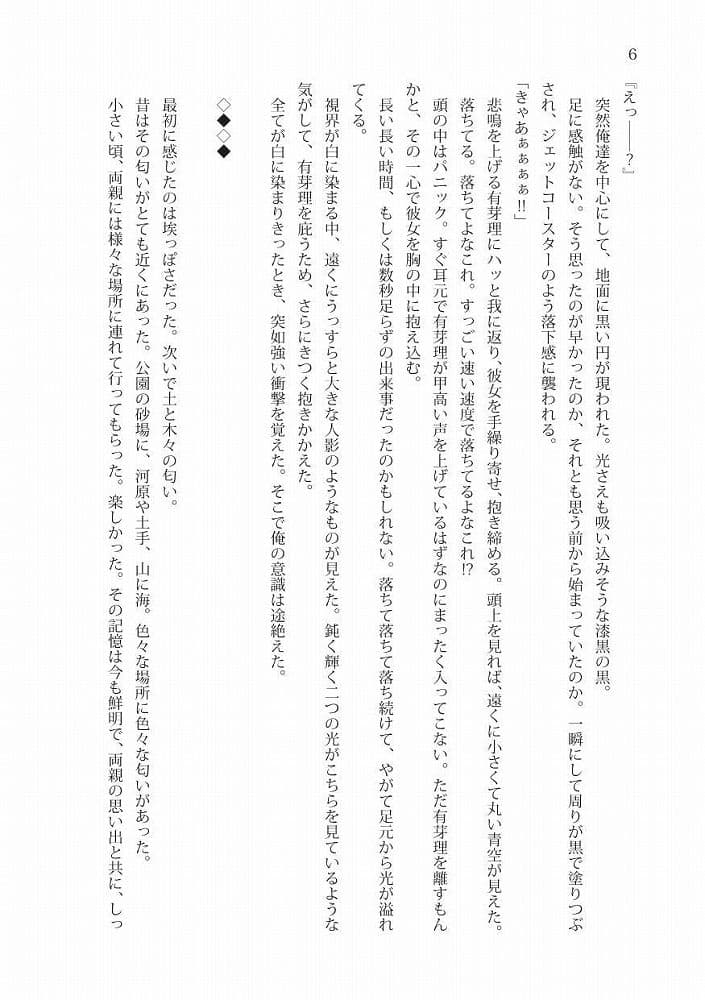 6
『えっ――？』
突然俺達を中心にして、地面に黒い円が現われた。光さえも吸い込みそうな漆黒の黒。
足に感触がない。そう思ったのが早かったのか、それとも思う前から始まっていたのか。一瞬にして周りが黒で塗りつぶ
され、ジェットコースターのよう落下感に襲われる。
「きゃあぁぁぁぁ!!」
悲鳴を上げる有芽理にハッと我に返り、彼女を手繰り寄せ、抱き締める。頭上を見れば、遠くに小さくて丸い青空が見えた。
落ちてる。落ちてよなこれ。すっごい速い速度で落ちてるよなこれ!?
頭の中はパニック。すぐ耳元で有芽理が甲高い声を上げているはずなのにまったく入ってこない。ただ有芽理を離すもん
かと、その一心で彼女を胸の中に抱え込む。
長い長い時間、もしくは数秒足らずの出来事だったのかもしれない。落ちて落ちて落ち続けて、やがて足元から光が溢れ
てくる。
視界が白に染まる中、遠くにうっすらと大きな人影のようなものが見えた。鈍く輝く二つの光がこちらを見ているような
気がして、有芽理を庇うため、さらにきつく抱きかかえた。
全てが白に染まりきったとき、突如強い衝撃を覚えた。そこで俺の意識は途絶えた。
◇◆◇◆
最初に感じたのは埃っぽさだった。次いで土と木々の匂い。
昔はその匂いがとても近くにあった。公園の砂場に、河原や土手、山に海。色々な場所に色々な匂いがあった。
小さい頃、両親には様々な場所に連れて行ってもらった。楽しかった。その記憶は今も鮮明で、両親の思い出と共に、しっ